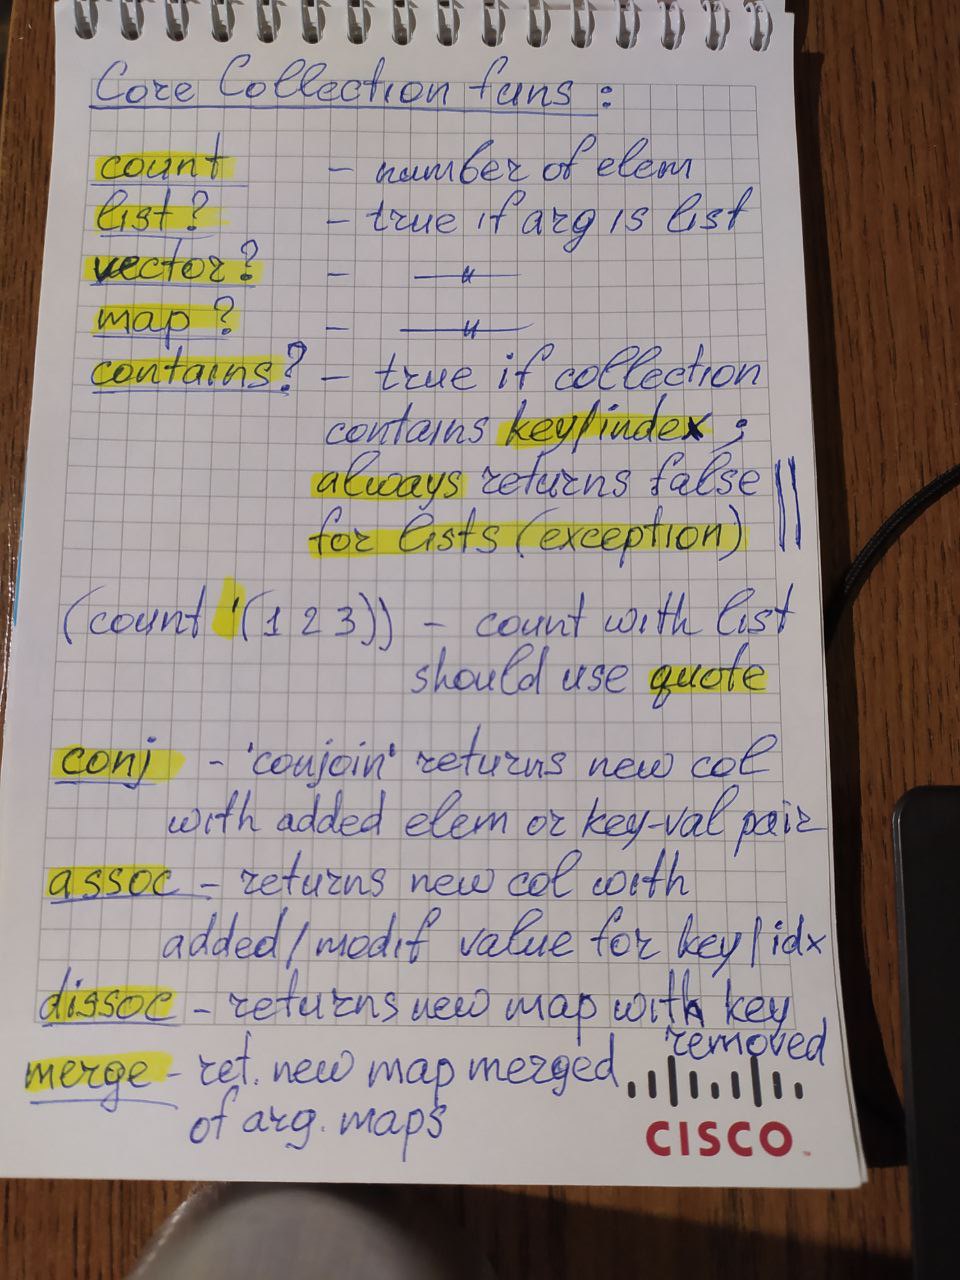 Core Collection funs :
count - number of elem
list? - true if arg is list
vector? - —〃—
map? - —〃—
contains? - true if collection
contains key/index ;
always returns false
for lists (exception)
(count '(1 2 3)) - count with list
should use quote
conj - 'conjoin' returns new col
with added elem or key-val pair
assoc - returns new col with
added/modif value for key/idx
dissoc - returns new map with key
removed
merge - ret. new map merged
of arg. maps
CISCO